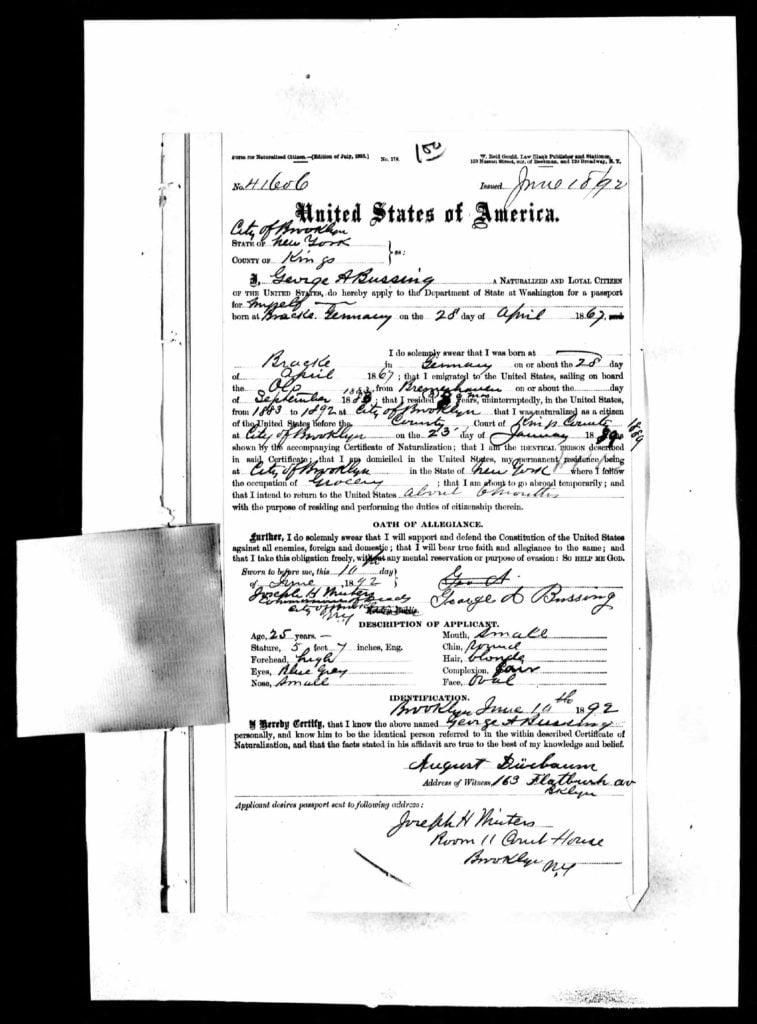 FORM FOR NATURALIZED CITIZEN.—(Edition of July, 1888.) No. 176. 150 W. Reid Gould, Law Blank Publisher and Stationer,
Nassau Street, cor. of Beekman, and 120 Broadway, N. Y.
No. 41606 Issued June 18/92
United States of America.
City of Brooklyn
STATE OF New York
COUNTY OF Kings } ss:
I, George A Bussing, A NATURALIZED AND LOYAL CITIZEN
OF THE UNITED STATES, do hereby apply to the Department of State at Washington for a passport
for myself
born at Bracke. Germany on the 28 day of April 1867, and
I do solemnly swear that I was born at
Bracke in Germany on or about the 28 day
of April 1867; that I emigrated to the United States, sailing on board
the from Bremerhaven on or about the day
of September 1883; that I resided years, uninterruptedly, in the United States,
from 1883 to 1892 at City of Brooklyn that I was naturalized as a citizen
of the United States before the County Court of Kings County
at City of Brooklyn on the 23 day of January 1889 1889 as
shown by the accompanying Certificate of Naturalization; that I am the IDENTICAL PERSON described
in said Certificate; that I am domiciled in the United States, my permanent residence being
at City of Brooklyn in the State of New York where I follow
the occupation of Grocery; that I am about to go abroad temporarily; and
that I intend to return to the United States about 6 months
with the purpose of residing and performing the duties of citizenship therein.
OATH OF ALLEGIANCE.
Further, I do solemnly swear that I will support and defend the Constitution of the United States
against all enemies, foreign and domestic; that I will bear true faith and allegiance to the same; and
that I take this obligation freely, without any mental reservation or purpose of evasion: SO HELP ME GOD.
Sworn to before me, this 10th day
of June 1892 } Geo A.
Joseph H Winters George A Bussing
Commissioner of Deeds
City of Brooklyn
NY Notary Public
DESCRIPTION OF APPLICANT.
Age, 25 years. Mouth, Small
Stature, 5 feet 7 inches, Eng. Chin, Round
Forehead, high Hair, blonde
Eyes, Blue Grey Complexion, fair
Nose, Small Face, Oval
IDENTIFICATION.
Brooklyn June 10th 1892
I Hereby Certify, that I know the above named George A Bussing
personally, and know him to be the identical person referred to in the within described Certificate of
Naturalization, and that the facts stated in his affidavit are true to the best of my knowledge and belief.
August
Address of Witness, 163 Flatbush av
Bklyn
Applicant desires passport sent to following address:
Joseph H Winters
Room 11 Court House
Brooklyn NY